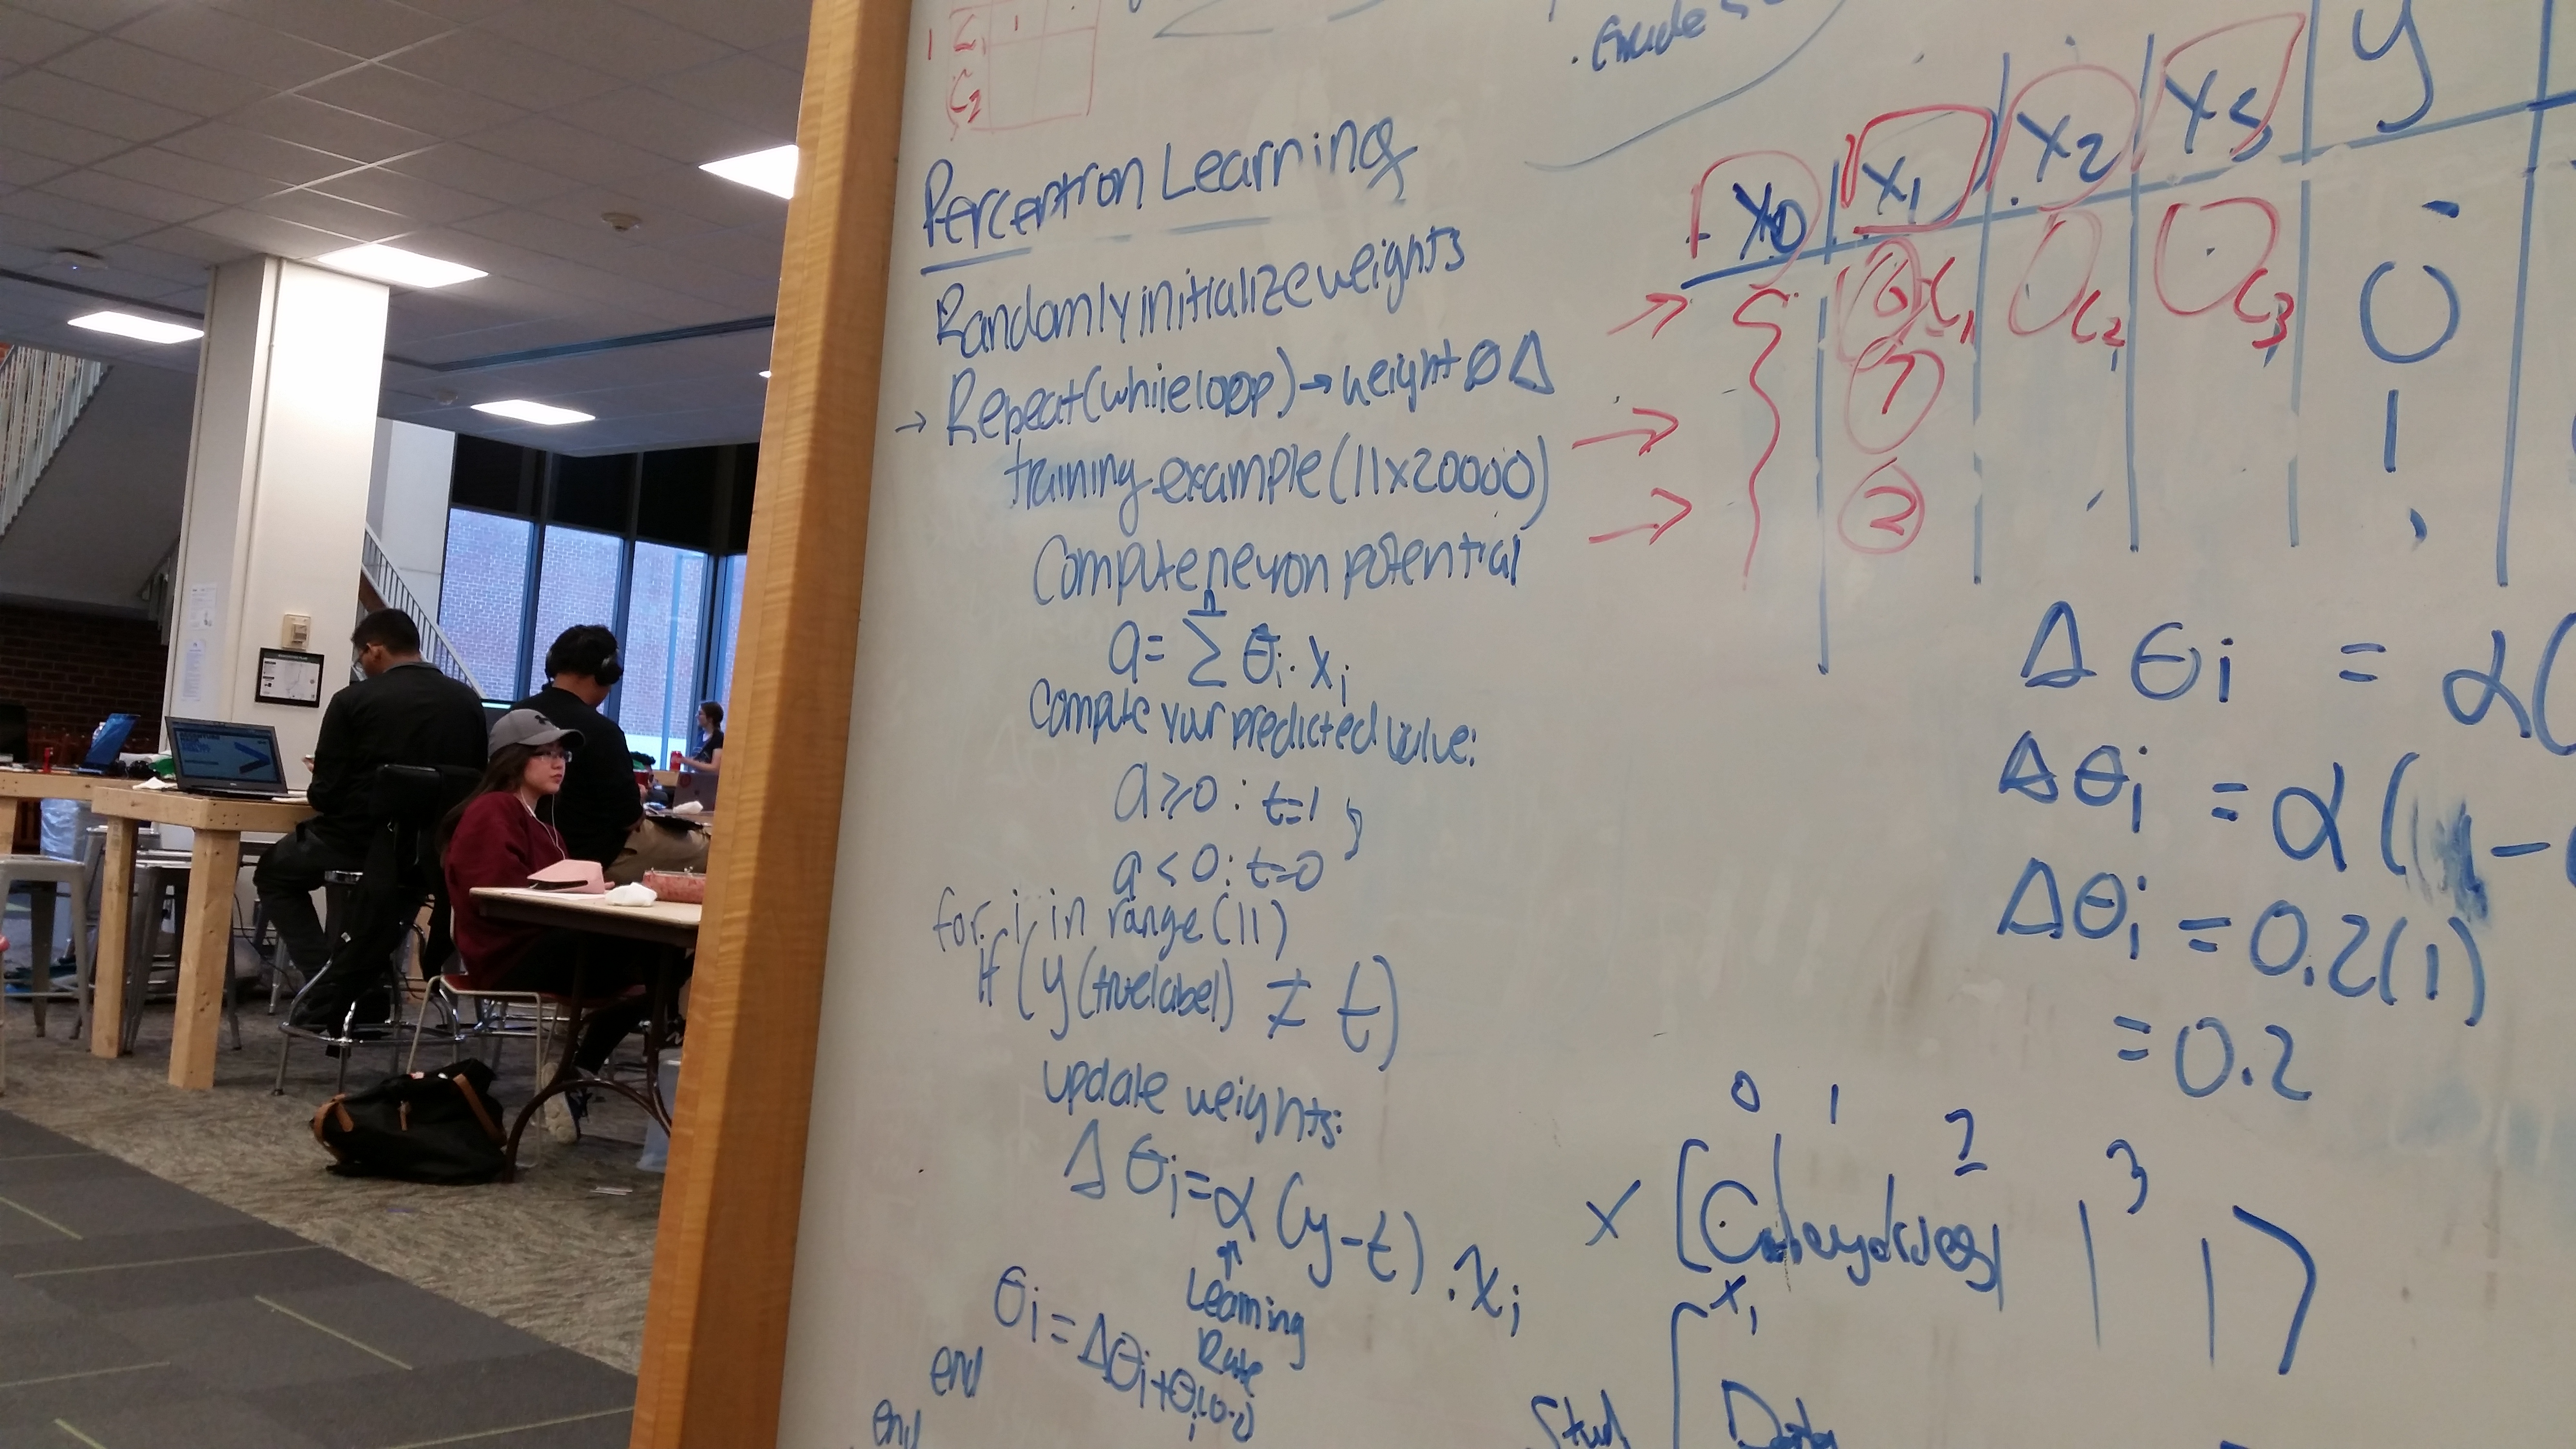 C₁ 1
C₂
Perceptron Learning
Randomly initialize weights
→ Repeat (while loop) → weight Ø Δ
training example (11x20000)
Compute neuron potential
n
a = Σ θi · xi
Compute your predicted value:
a ≥ 0 : t=1
a < 0 : t=0
for i in range (11)
if (y (true label) ≠ t)
update weights:
Δθi = α (y-t) . xi
↑
Learning
Rate
θi = Δθi + θi
end
end
x0 | x1 | x2 | x3 | y
→ 6 C₁ C₂ C₃ 0
→ 7 1
→ 2
Δθi = α(
Δθi = α(1 -
Δθi = 0.2(1)
= 0.2
0 1 2 3
x [
x1
Data